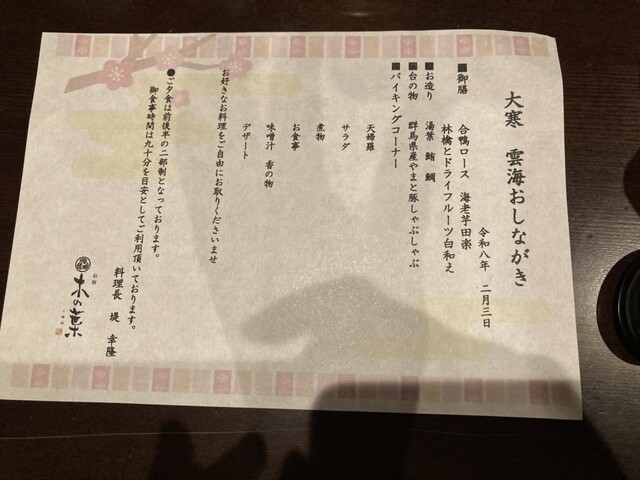 大寒　雲海おしながき
令和八年　二月三日
■御膳　合鴨ロース　海老芋田楽
林檎とドライフルーツ白和え
■お造り　湯葉　鮪　鯛
■台の物　群馬県産やまと豚しゃぶしゃぶ
■バイキングコーナー
天婦羅
サラダ
煮物
お食事
味噌汁　香の物
デザート
お好きなお料理をご自由にお取りくださいませ
●ご夕食は前後半の二部制となっております。
御食事時間は九十分を目安としてご利用頂いております。
料理長　堤　幸隆
お宿
木の葉